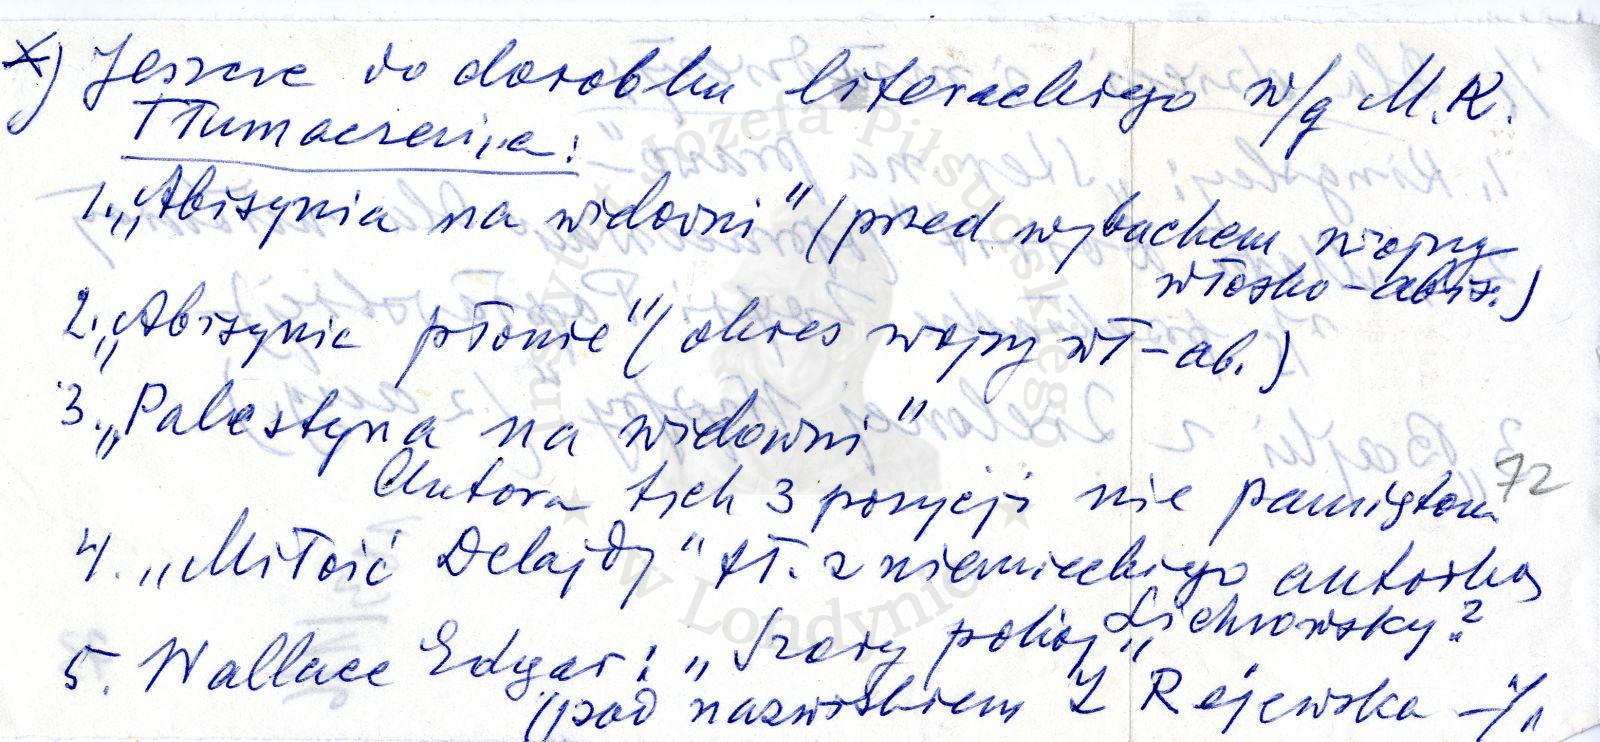 x) Jeszcze do dorobku literackiego w/g M.K.
Tłumaczenia:
1. „Abisynia na widowni" (przed wybuchem wojny
włosko-abis.)
2. „Abisynia płonie" (okres wojny wł-ab.)
3. „Palestyna na widowni"
Autora tych 3 pozycji nie pamiętam
72
4. „Miłość Delajdy" tł. z niemieckiego autorka
Lichnowsky?
5. Wallace Edgar: „Szary pokój"
(pod nazwiskiem Z Rajewska
Instytut Józefa Piłsudskiego
w Londynie